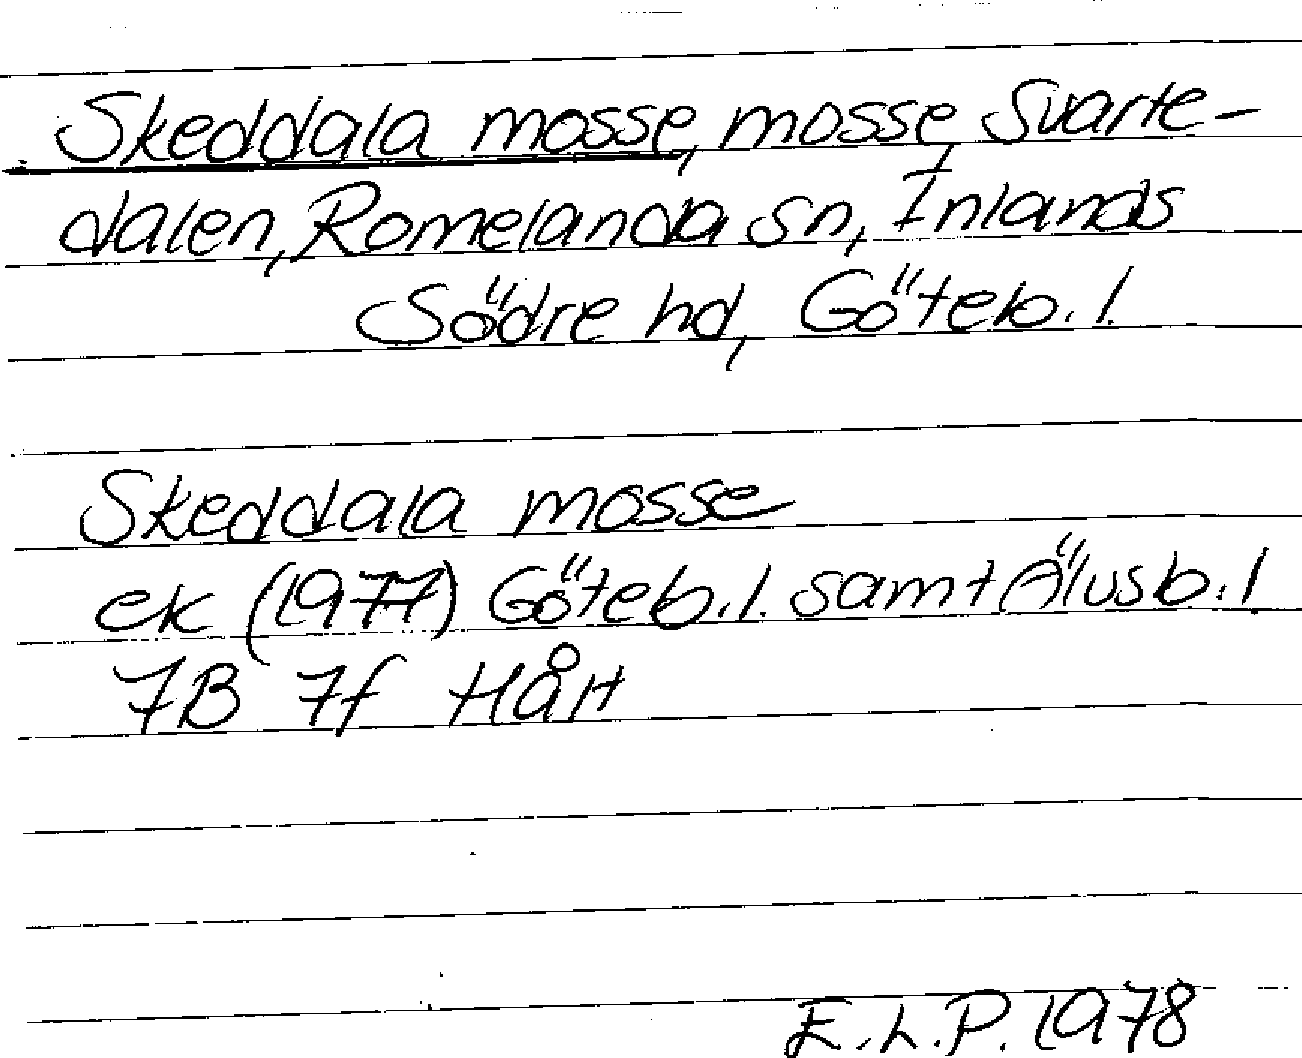 Skeddala mosse, mosse, Svarte-
dalen, Romelanda sn, Inlands
Södre hd, Göteb. l.
Skeddala mosse
ek (1977) Göteb. l. samt Älvsb. l
7B 7f HÅH
E.L.P. 1978